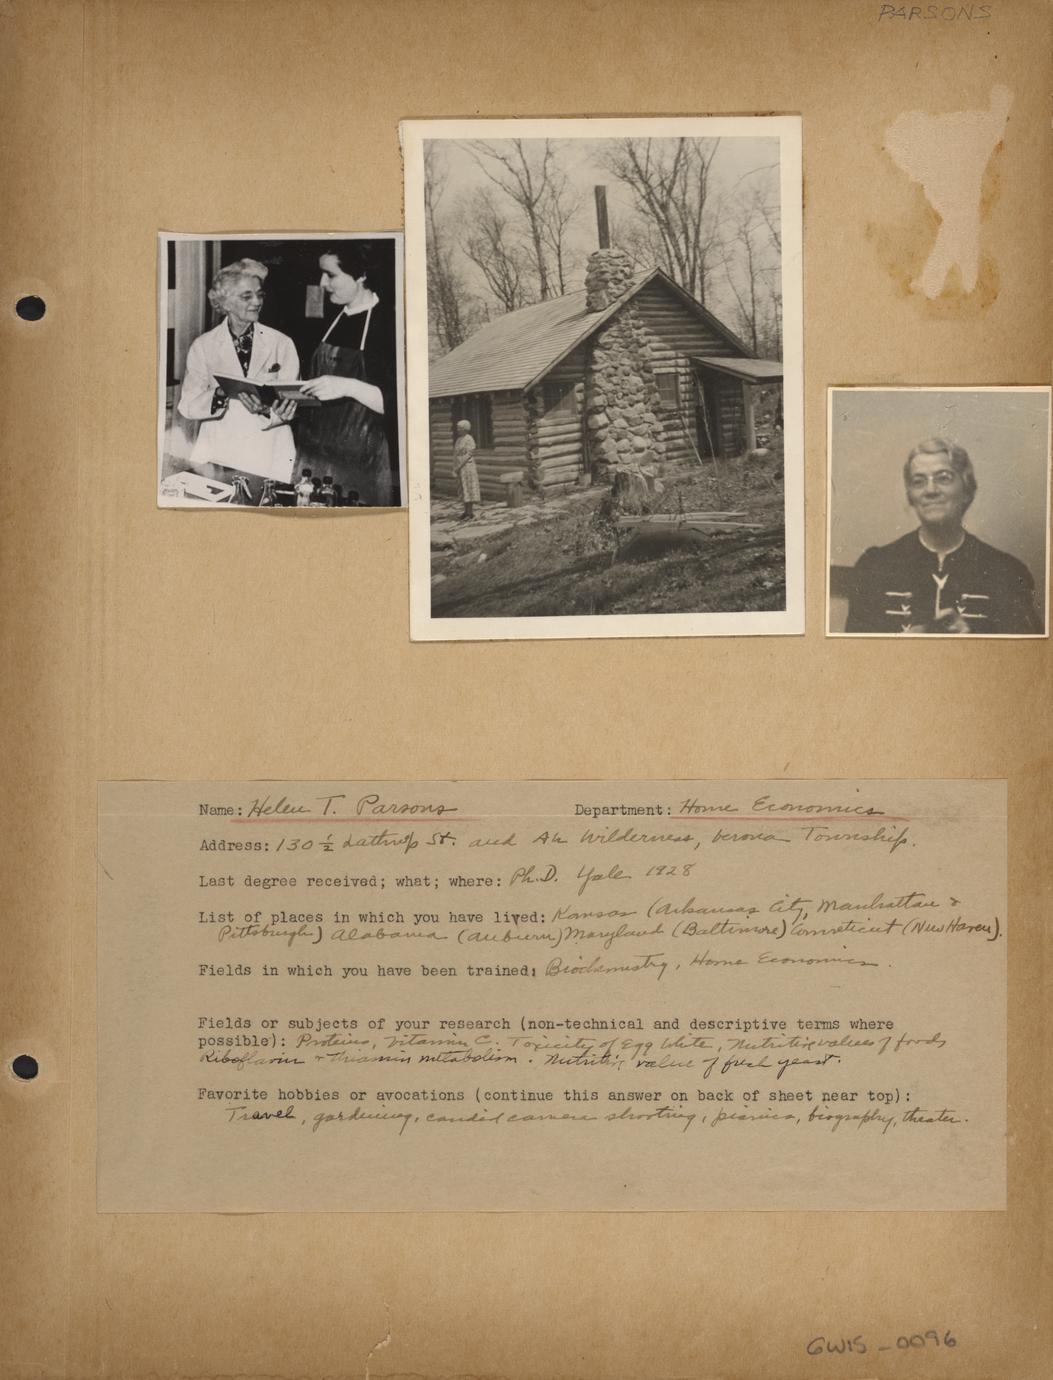 PARSONS
Name: Helen T. Parsons Department: Home Economics
Address: 130 ½ Lathrop St. and Ah Wilderness, Verona Township.
Last degree received; what; where: Ph.D. Yale 1928
List of places in which you have lived: Kansas (Arkansas City, Manhattan &
Pittsburgh) Alabama (Auburn) Maryland (Baltimore) Connecticut (New Haven).
Fields in which you have been trained: Biochemistry, Home Economics.
Fields or subjects of your research (non-technical and descriptive terms where
possible): Proteins, Vitamin C. Toxicity of Egg White, Nutritive values of foods
Riboflavin & Thiamin metabolism. Nutritive value of fresh yeast.
Favorite hobbies or avocations (continue this answer on back of sheet near top):
Travel, gardening, candid camera shooting, picnics, biography, theater.
GWIS-0096